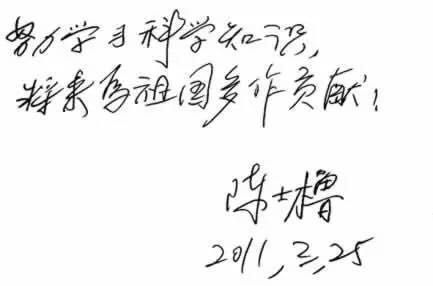 努力学习科学知识,
将来为祖国多作贡献!
陈士橹
2011,3,25